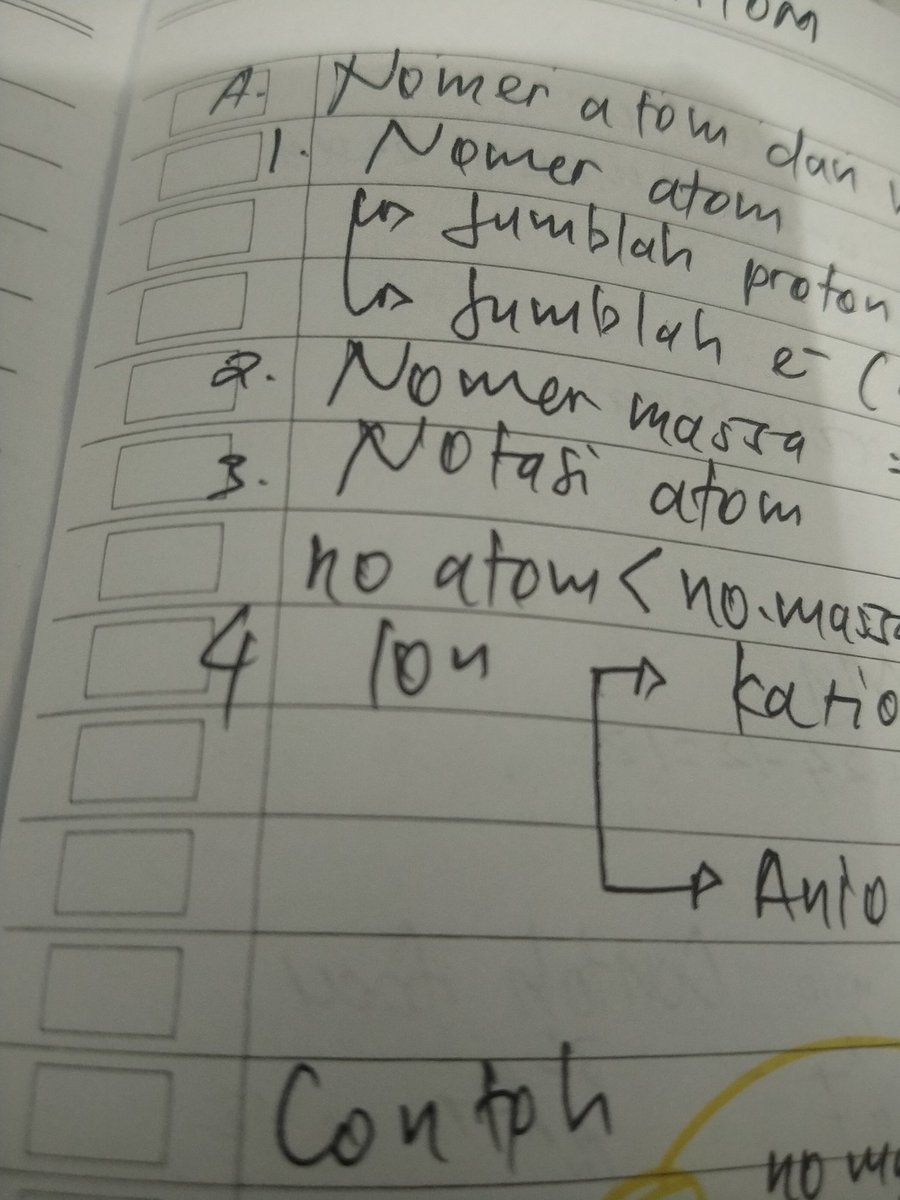 A. Nomer atom dan
1. Nomer atom
↳ Jumblah proton
↳ Jumblah e⁻ (
2. Nomer massa =
3. Notasi atom
no atom < no.massa
4 Ion → Katio
→ Anio
Contoh
no ma